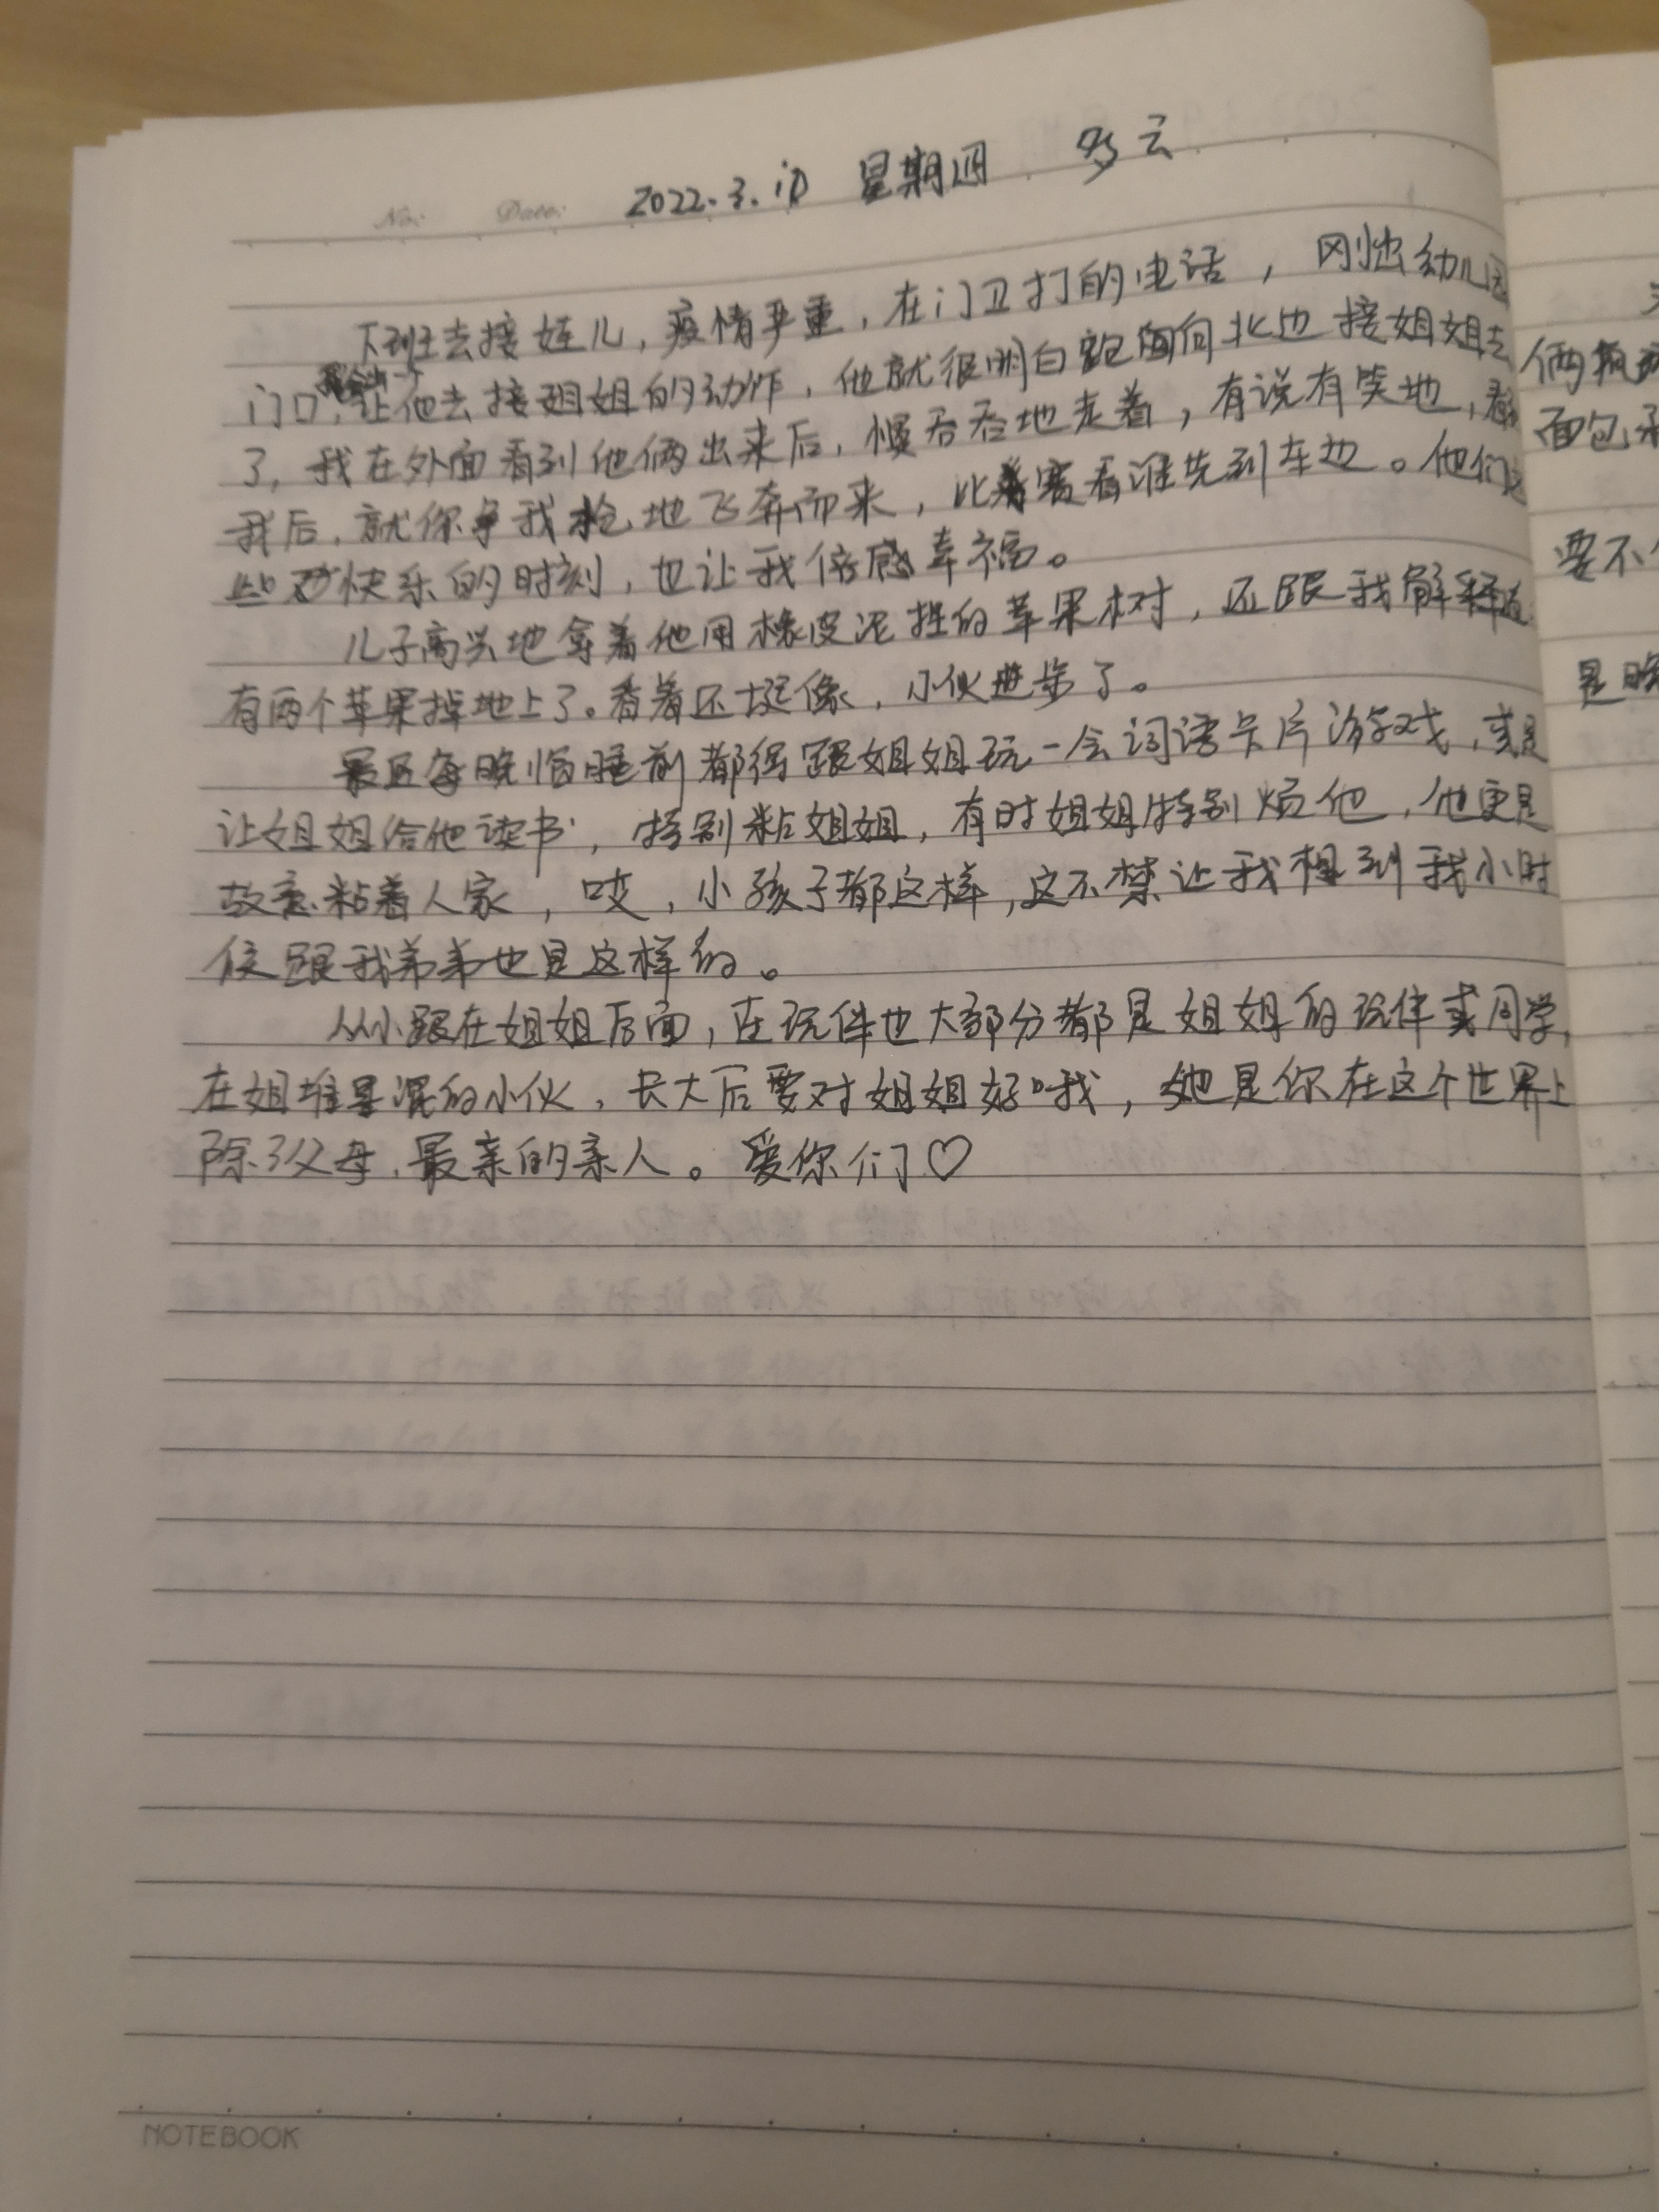 No: Date: 2022.3.10 星期四 多云
下班去接娃儿，疫情严重，在门卫打的电话，刚出幼儿园
门口，让他去接姐姐的动作，他就很明白跑向北边接姐姐去
了，我在外面看到他俩出来后，慢吞吞地走着，有说有笑地，看
我后，就你争我抢地飞奔而来，比赛看谁先到车边。他们这
些快乐的时刻，也让我倍感幸福。
儿子高兴地拿着他用橡皮泥捏的苹果树，还跟我解释道
有两个苹果掉地上了。看着还挺像，小伙进步了。
最近每晚临睡前都得跟姐姐玩一会词语卡片游戏，或是
让姐姐给他读书，特别粘姐姐，有时姐姐特别烦他，他更是
故意粘着人家，哎，小孩子都这样，这不禁让我想到我小时
候跟我弟弟也是这样的。
从小跟在姐姐后面，在玩伴也大部分都是姐姐的玩伴或同学，
在姐堆里混的小伙，长大后要对姐姐好哦，她是你在这个世界上
除了父母，最亲的亲人。爱你们♡
俩
面包
要不
是晚
NOTEBOOK